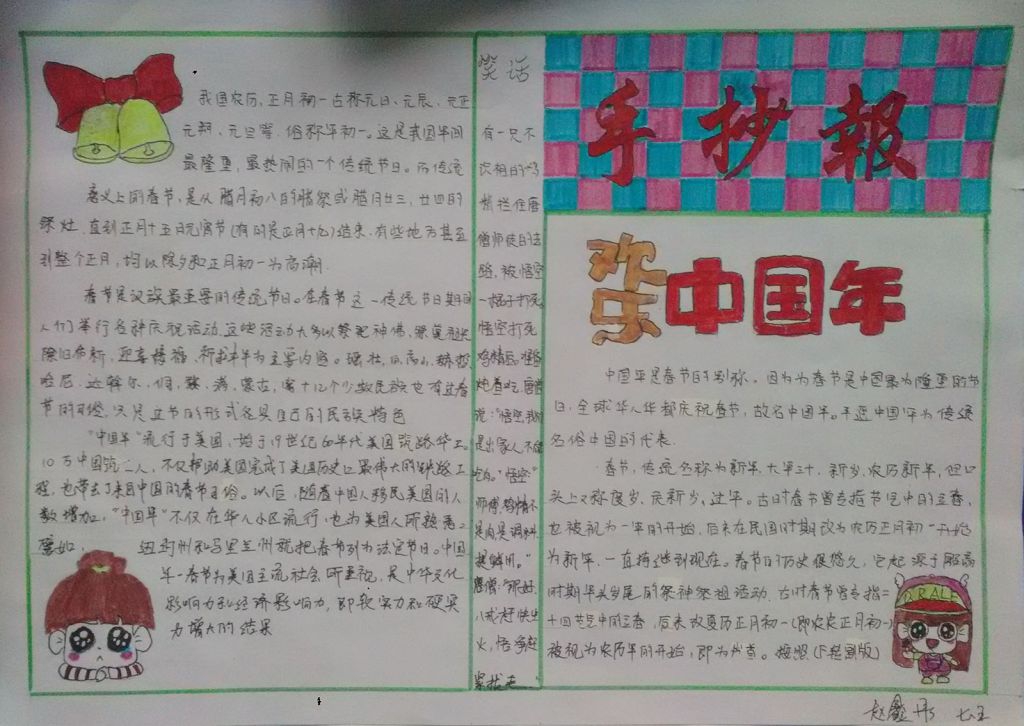 手抄報
欢乐
中国年
中国年是春节的别称。因为春节是中国最为隆重的节
日,全球华人华都庆祝春节,故名中国年。
名俗中国的代表.
春节,传统名称为新年、大年三十、新岁、农历新年,但口
头上又称度岁、庆新岁、过年。古时春节曾专指节气中的立春,
也被视为一年的开始,后来在民国时期改为农历正月初一开始
为新年,一直持续到现在。春节的历史很悠久,它起源于殷商
时期年头岁尾的祭神祭祖活动。古时春节曾专指二
十四节气中的立春,后来改夏历正月初一(即农农正月初一)
被视为农历年的开始,即为
我国农历,正月初一古称元日、元辰、元正
元朔、元旦等,俗称年初一。这是我国年间
最隆重,最热闹的一个传统节日。而传统
意义上的春节,是从腊月初八的腊祭或腊月廿三、廿四的
祭灶,直到正月十五日元宵节(有的是正月十九)结束,有些地方甚至
到整个正月,均以除夕和正月初一为高潮.
春节是汉族最重要的传统节日。在春节这一传统节日期间
人们举行各种庆祝活动,这些活动大多以祭祀神佛、祭奠祖先
除旧布新、迎喜接福、祈求丰年为主要内容。
哈尼、达斡尔、侗、黎、满、蒙古,等十几个少数民族也有过春
节的习俗,只是过节的形式各具自己的民族特色
"中国年"流行于美国,始于19世纪60年代美国筑路华工。
10万中国筑工人,不仅帮助美国完成了美国历史上最伟大的铁路工
程,也带去了来自中国的春节习俗。以后,随着中国人移民美国的人
数增加,"中国年"不仅在华人小区流行,也为美国人所熟悉。
譬如,纽约州和马里兰州就把春节列为法定节日。中国
年一春节为美国主流社会所重视,是中华文化
影响力和经济影响力,即软实力和硬实
力增大的结果
笑话
有一只不
识相的鸡
精拦住唐
僧师徒的去
路,被悟空
一棍子打死。
悟空打死
说:"悟空,我们
是出家人不能
吃肉。"悟空:"
是肉是调料
提鲜用。"
八戒赶快生
七五